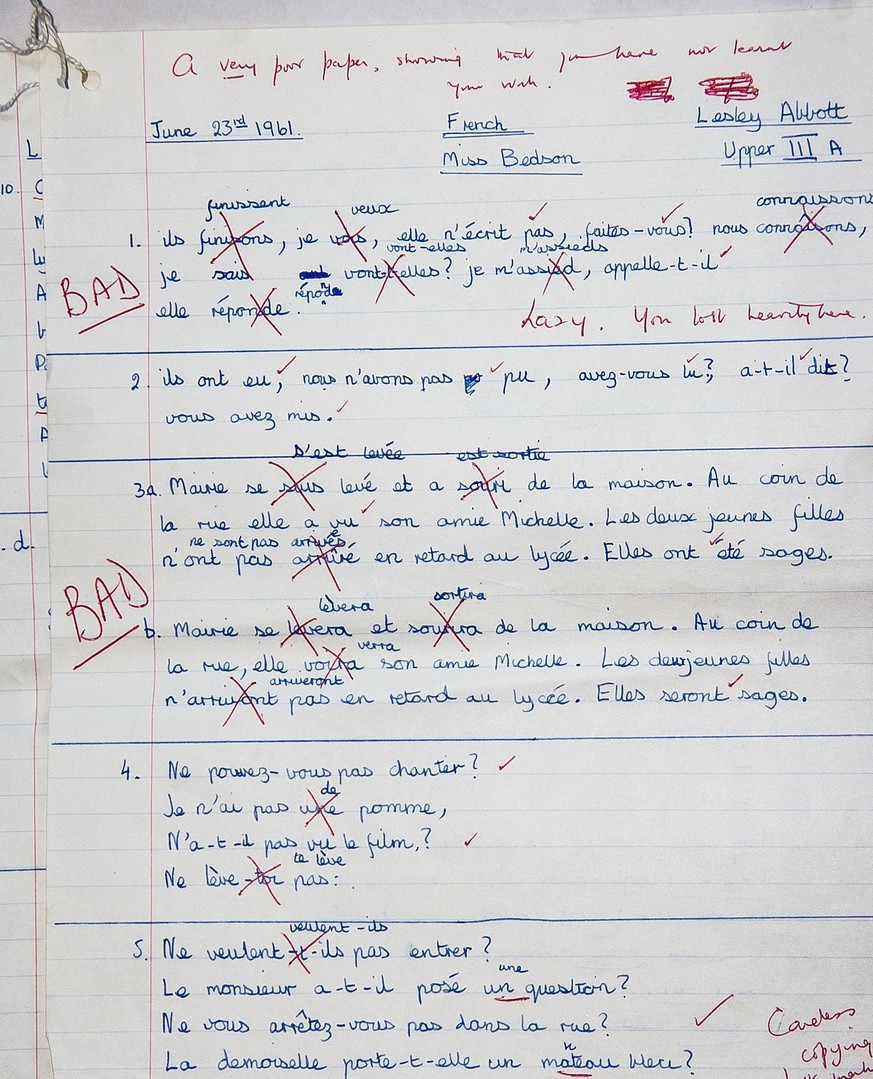 A very poor paper, showing that you have not learnt
your work.
June 23rd 1961.
French
Lesley Abbott
Miss Bedson
Upper III A
finissent veux connaissons
1. ils finisons, je vois, elle n'écrit pas, faites-vous? nous connaîsons,
vont-elles m'assieds
je sais vont-t-elles? je m'assied, appelle-t-il
BAD
réponde
elle réponde.
Lazy. You lost heavily here.
2. ils ont eu, nous n'avons pas pu, avez-vous lu?, a-t-il dit?
vous avez mis.
s'est levée est sortie
3a. Mairie se levé et a de la maison. Au coin de
la rue elle a vu son amie Michelle. Les deux jeunes filles
ne sont pas arrivées
n'ont pas arrivé en retard au lycée. Elles ont été sages.
BAD
lèvera sortira
b. Mairie se levera et de la maison. Au coin de
verra
la rue, elle voira son amie Michelle. Les deuxjeunes filles
arriveront
n'arrivont pas en retard au lycée. Elles seront sages.
4. Ne pouvez-vous pas chanter?
de
Je n'ai pas une pomme,
N'a-t-il pas vu le film,?
te lève
Ne lève-toi pas:
veulent-ils
5. Ne veulent-t-ils pas entrer?
une
Le monsieur a-t-il posé un question?
Ne vous arrêtez-vous pas dans la rue?
n
La demoiselle porte-t-elle un mateau bleu?
Careless
copying
10.
L
C
M
A
P
t
A
. d.